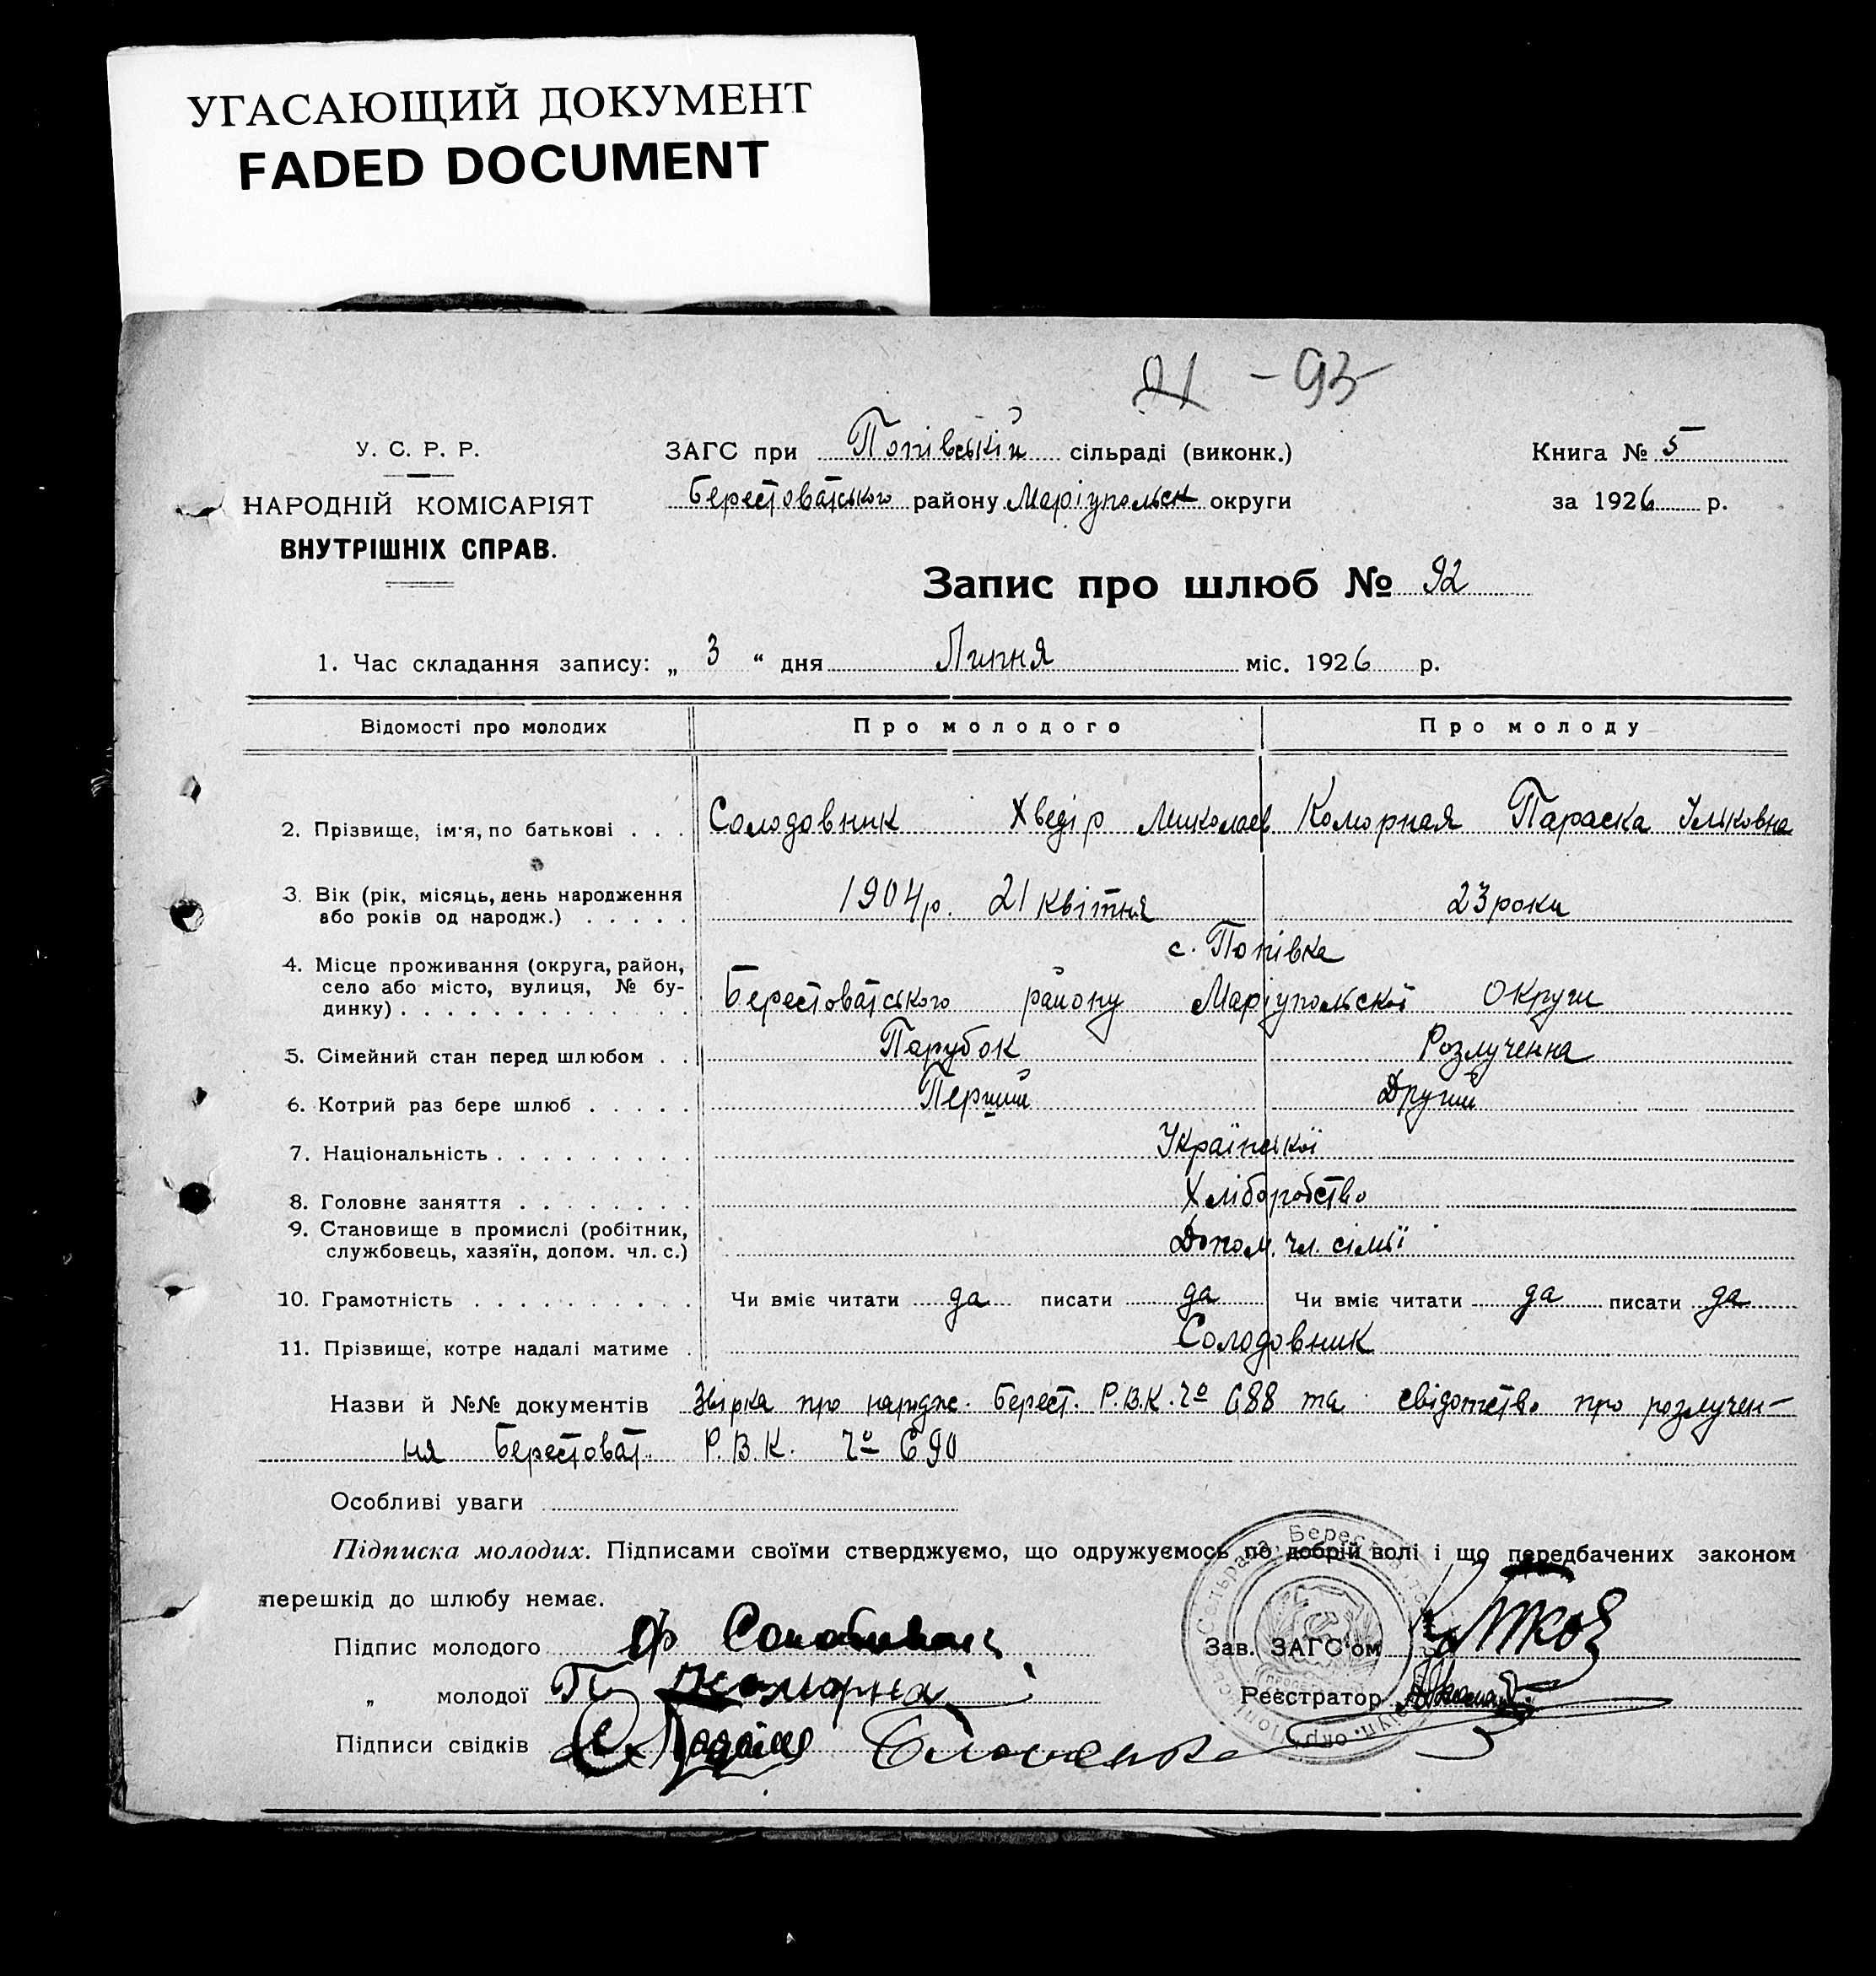 УГАСАЮЩИЙ ДОКУМЕНТ
FADED DOCUMENT
91 - 93
У. С. Р. Р.
НАРОДНІЙ КОМІСАРІЯТ
ВНУТРІШНІХ СПРАВ.
ЗАГС при Попівській сільраді (виконк.)
Берестоватського району Маріупольськ округи
Книга № 5
за 1926 р.
Запис про шлюб № 92
1. Час складання запису: „ 3 “ дня Липня міс. 1926 р.
Відомості про молодих Про молодого Про молоду
2. Прізвище, ім'я, по батькові . . . Солодовник Хведір Миколаев Коморная Параска Ільковна
3. Вік (рік, місяць, день народження
або років од народж.) . . . . . 1904 р. 21 квітня 23 роки
с. Попівка
4. Місце проживання (округа, район,
село або місто, вулиця, № бу-
динку) . . . . . . . . . . . . . Берестоватського району Маріупольскої Округи
5. Сімейний стан перед шлюбом . . Парубок Розлученна
6. Котрий раз бере шлюб . . . . . Перший Другий
7. Національність . . . . . . . . . Української
8. Головне заняття . . . . . . . . Хліборобство
9. Становище в промислі (робітник,
службовець, хазяїн, допом. чл. с.) Допом. чл. сімьї
10. Грамотність . . . . . . . . . . Чи вміє читати да писати да Чи вміє читати да писати да
11. Прізвище, котре надалі матиме . Солодовник
Назви й №№ документів Звірка про народж. Берест. Р.В.К. Чо 688 та свідотство про розлучен-
ня Берестоват. Р.В.К. Чо 690
Особливі уваги
Підписка молодих. Підписами своїми стверджуємо, що одружуємось по добрій волі і що передбачених законом
перешкід до шлюбу немає.
Підпис молодого Ф
Зав. ЗАГС'ом
„ молодої П Коморна
Реєстратор
Підписи свідків